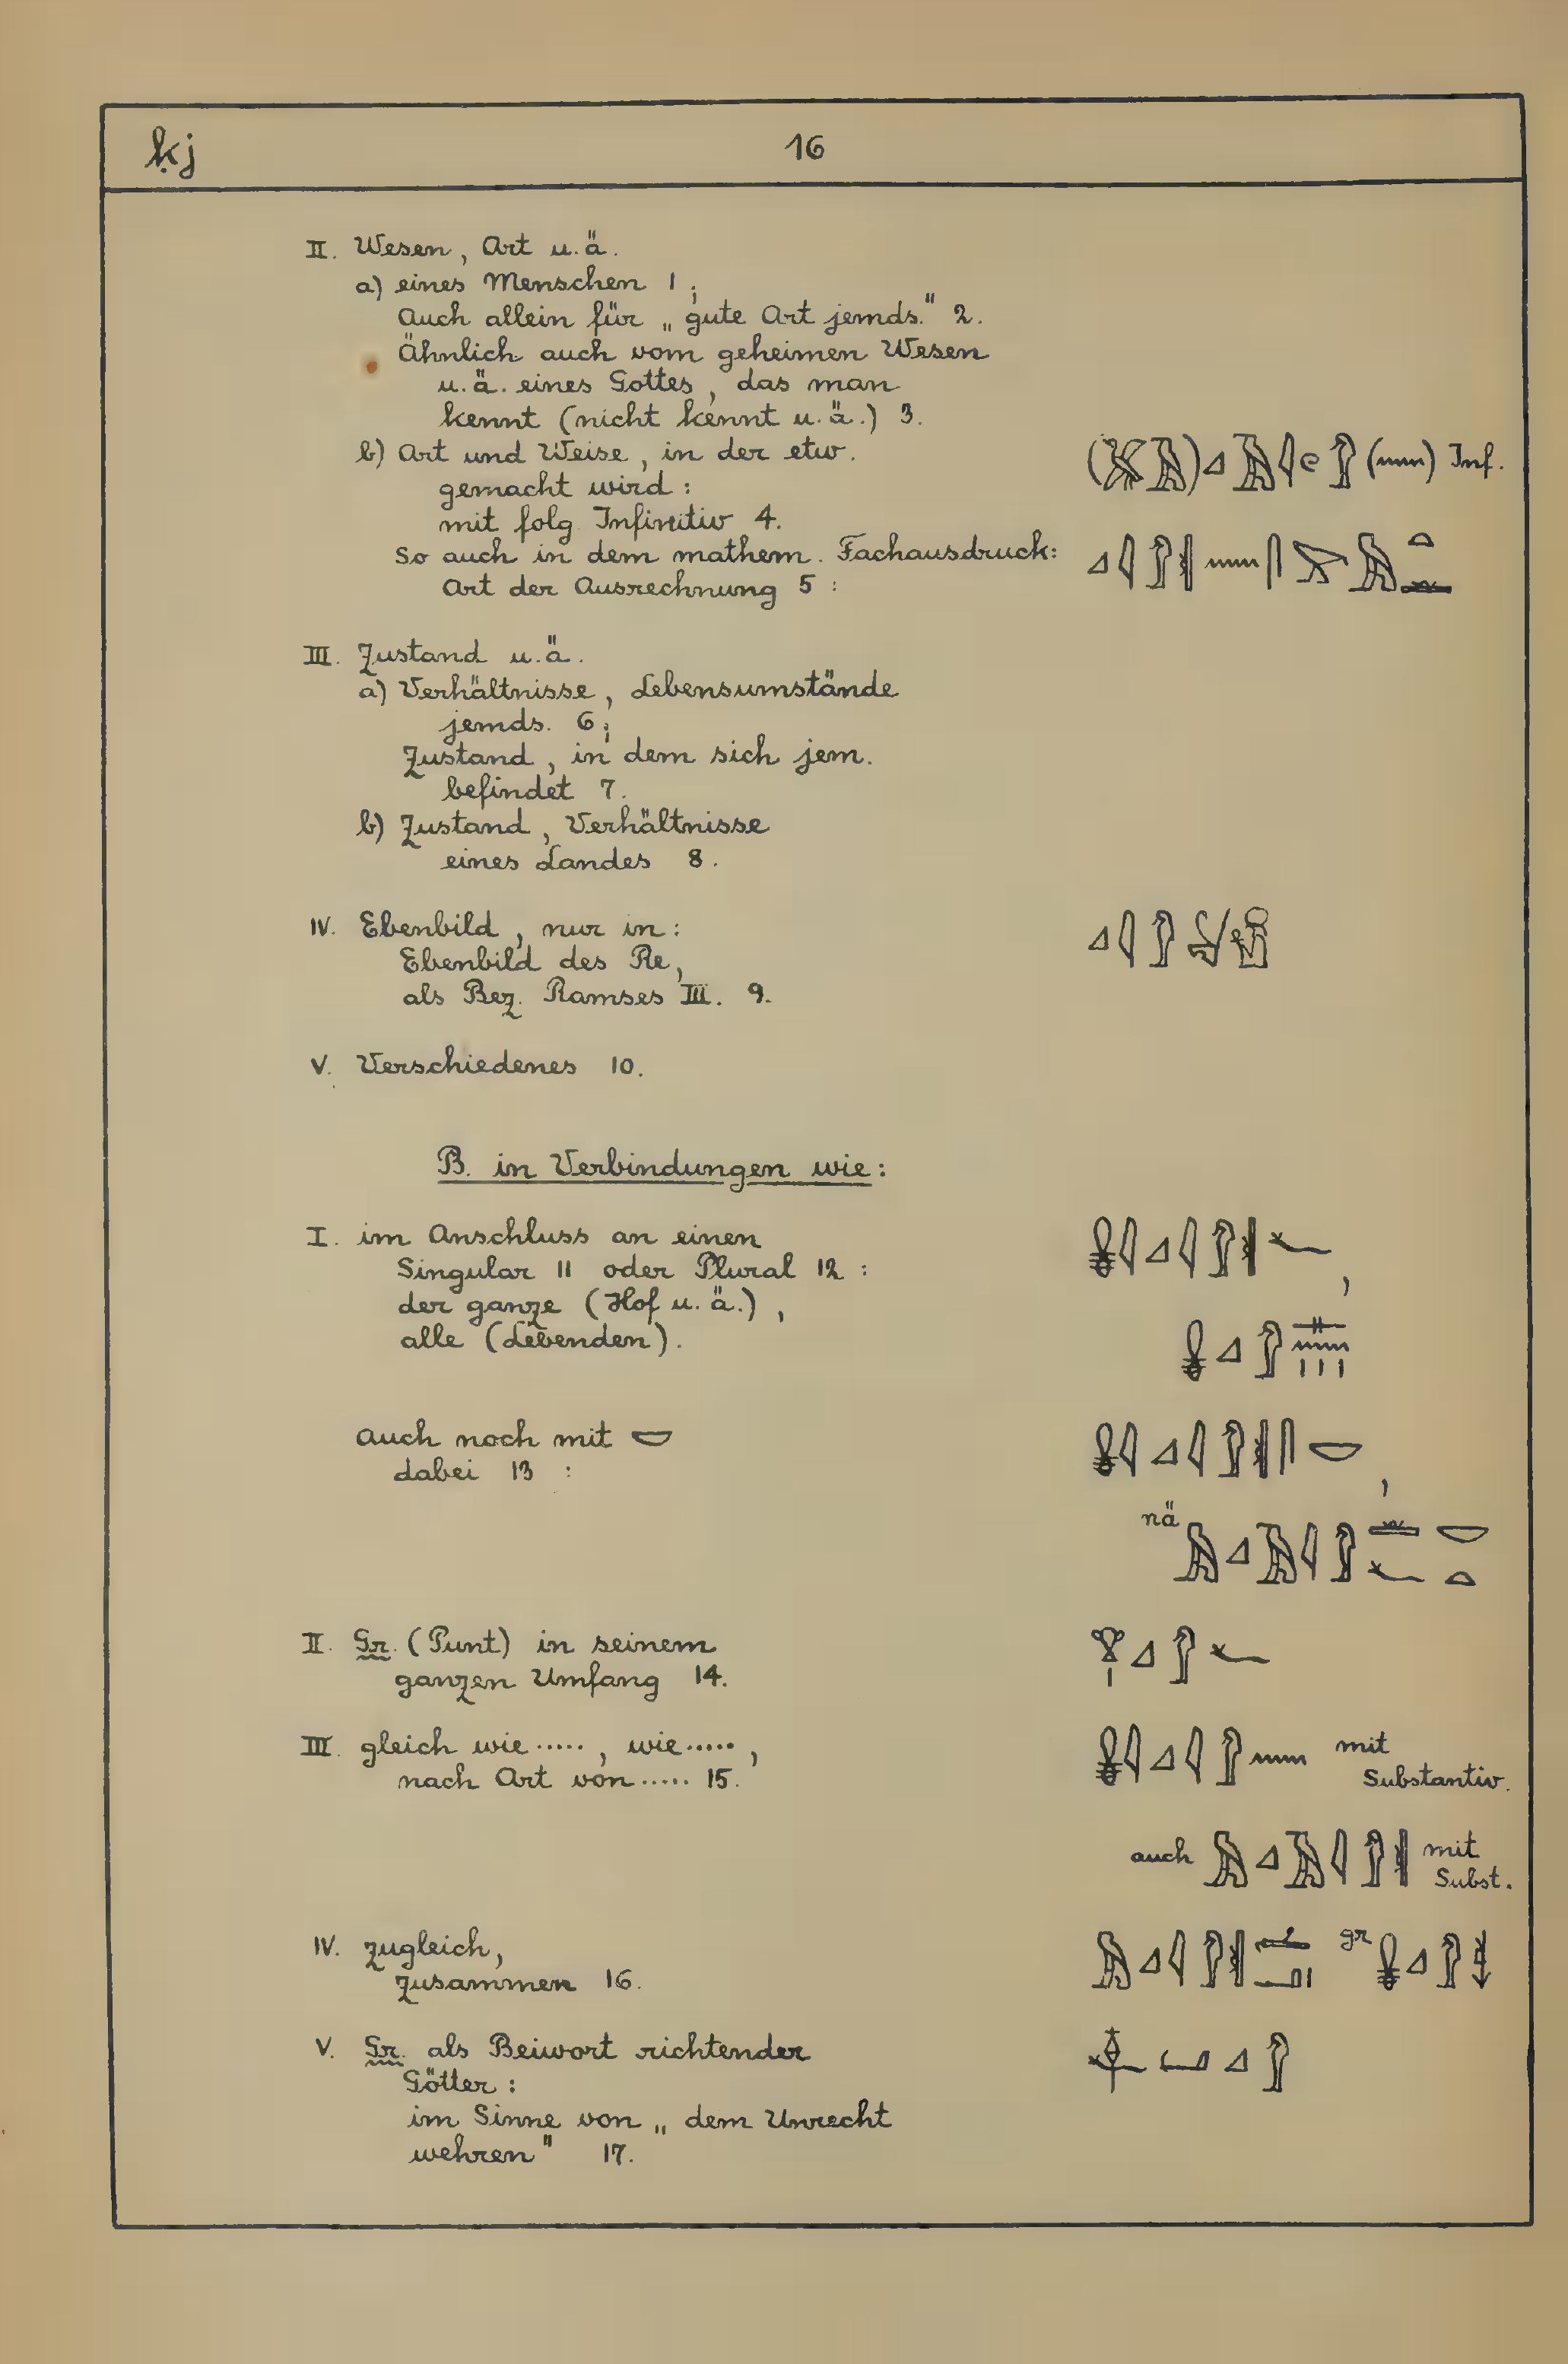 ḳj 16
II. Wesen, Art u.ä.
a) eines Menschen 1;
Auch allein für „gute Art jemds." 2.
Ähnlich auch vom geheimen Wesen
u.ä. eines Gottes, das man
kennt (nicht kennt u.ä.) 3.
b) Art und Weise, in der etw.
gemacht wird:
mit folg. Infinitiv 4. Inf.
So auch in dem mathem. Fachausdruck:
Art der Ausrechnung 5 :
III. Zustand u.ä.
a) Verhältnisse, Lebensumstände
jemds. 6;
Zustand, in dem sich jem.
befindet 7.
b) Zustand, Verhältnisse
eines Landes 8.
IV. Ebenbild, nur in:
Ebenbild des Re,
als Bez. Ramses III. 9.
V. Verschiedenes 10.
B. in Verbindungen wie:
I. im Anschluss an einen
Singular 11 oder Plural 12 :
der ganze (Hof u.ä.),
alle (Lebenden).
Auch noch mit 𓎟
dabei 13 :
nä
II. Gr. (Punt) in seinem
ganzen Umfang 14.
III. gleich wie ....., wie .....,
nach Art von ..... 15.
mit
Substantiv.
auch mit
Subst.
IV. zugleich, gr
zusammen 16.
V. Gr. als Beiwort richtender
Götter:
im Sinne von „dem Unrecht
wehren" 17.